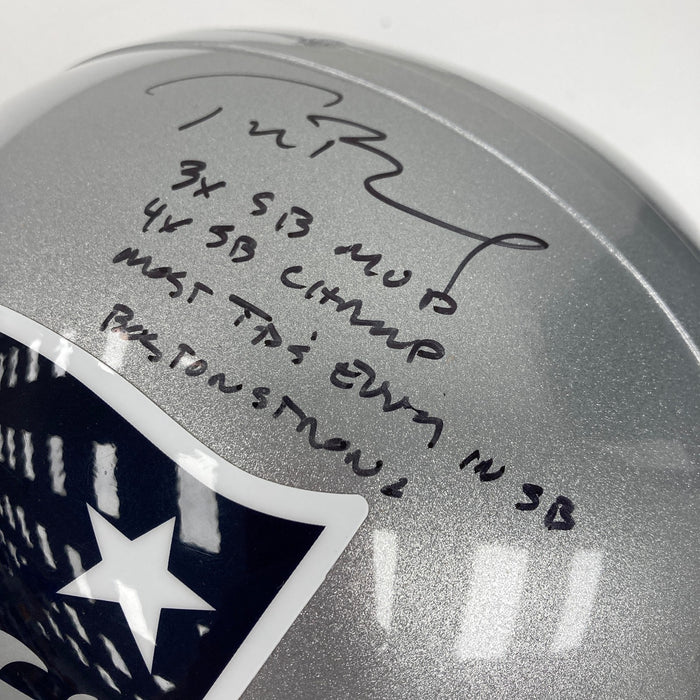 3X SB MVP
4X SB CHAMP
MOST TD'S EVER IN SB
BOSTON STRONG